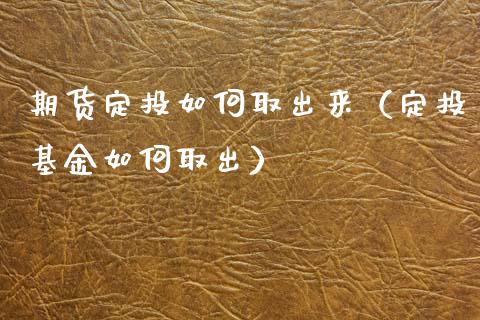 期货定投如何取出来（定投
基金如何取出）